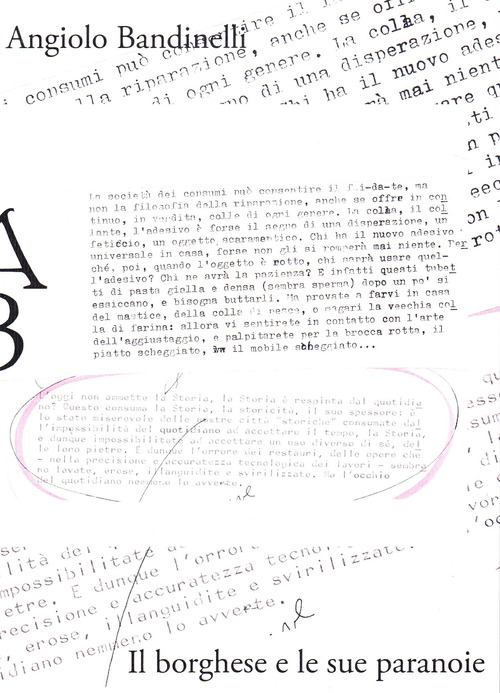 Angiolo Bandinelli
i consumi può consentire il f
lla riparazione, anche se offri
di ogni genere. La colla, il
no di una disperazione,
hi ha il nuovo ades
rà mai nient
A
B
La società dei consumi può consentire il f.i-da-te, ma
non la filosofia della riparazione, anche se offre in con
tinuo, in vendita, colle di ogni genere. La colla, il col
lante, l'adesivo è forse il segno di una disperazione, un
feticcio, un oggetto scaramantico. Chi ha il nuovo adesivo
universale in casa, forse non gli si romperà mai niente. Per
ché, poi, quando l'oggetto è rotto, chi saprà usare quel-
l'adesivo? Chi ne avrà la pazienza? E infatti questi tubet
ti di pasta gialla e densa (sembra sperma) dopo un po' si
essiccano, e bisogna buttarli. Ma provate a farvi in casa
del mastice, della colla di pesce, o magari la vecchia col
la di farina: allora vi sentirete in contatto con l'arte
dell'aggiustaggio, e palpitarete per la brocca rotta, il
piatto scheggiato, il mobile scheggiato...
L'oggi non ammette la Storia, la Storia è respinta dal quotidia
no? Questo consuma la Storia, la storicità, il suo spessore: è
lo stato miserevole delle nostre città "storiche" consumate dal
l'impossibilità del quotidiano ad accettare il tempo, la Storia,
e dunque impossibilitate ad accettare un uso diverso di sé, del
le loro pietre. E dunque l'orrore dei restauri, delle opere che
- nella precisione e accuratezza tecnologica dei lavori - sembra
no lavate, erose, illanguidite e svirilizzate. Ma l'occhio
del quotidiano nemmeno lo avverte.
lità del
mpossibilitate
etre. E dunque l'orror
recisione e accuratezza tecno
, erose, illanguidite e svirilizzate.
idiano nemmeno lo avverte.
Il borghese e le sue paranoie